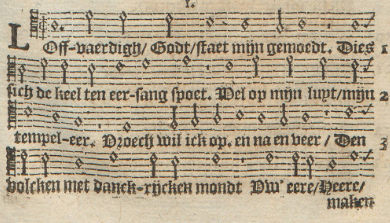 1.
LOff-vaerdigh/ Godt/ staet mijn gemoedt. Dies 1
sich de keel ten eer-sang spoet. Wel op mijn luyt/ mijn 2
tempel-eer. Vroech wil ick op. en na en veer / Den 3
volcken met danck-rijcken mondt Vw' eere/ Heere/
maken